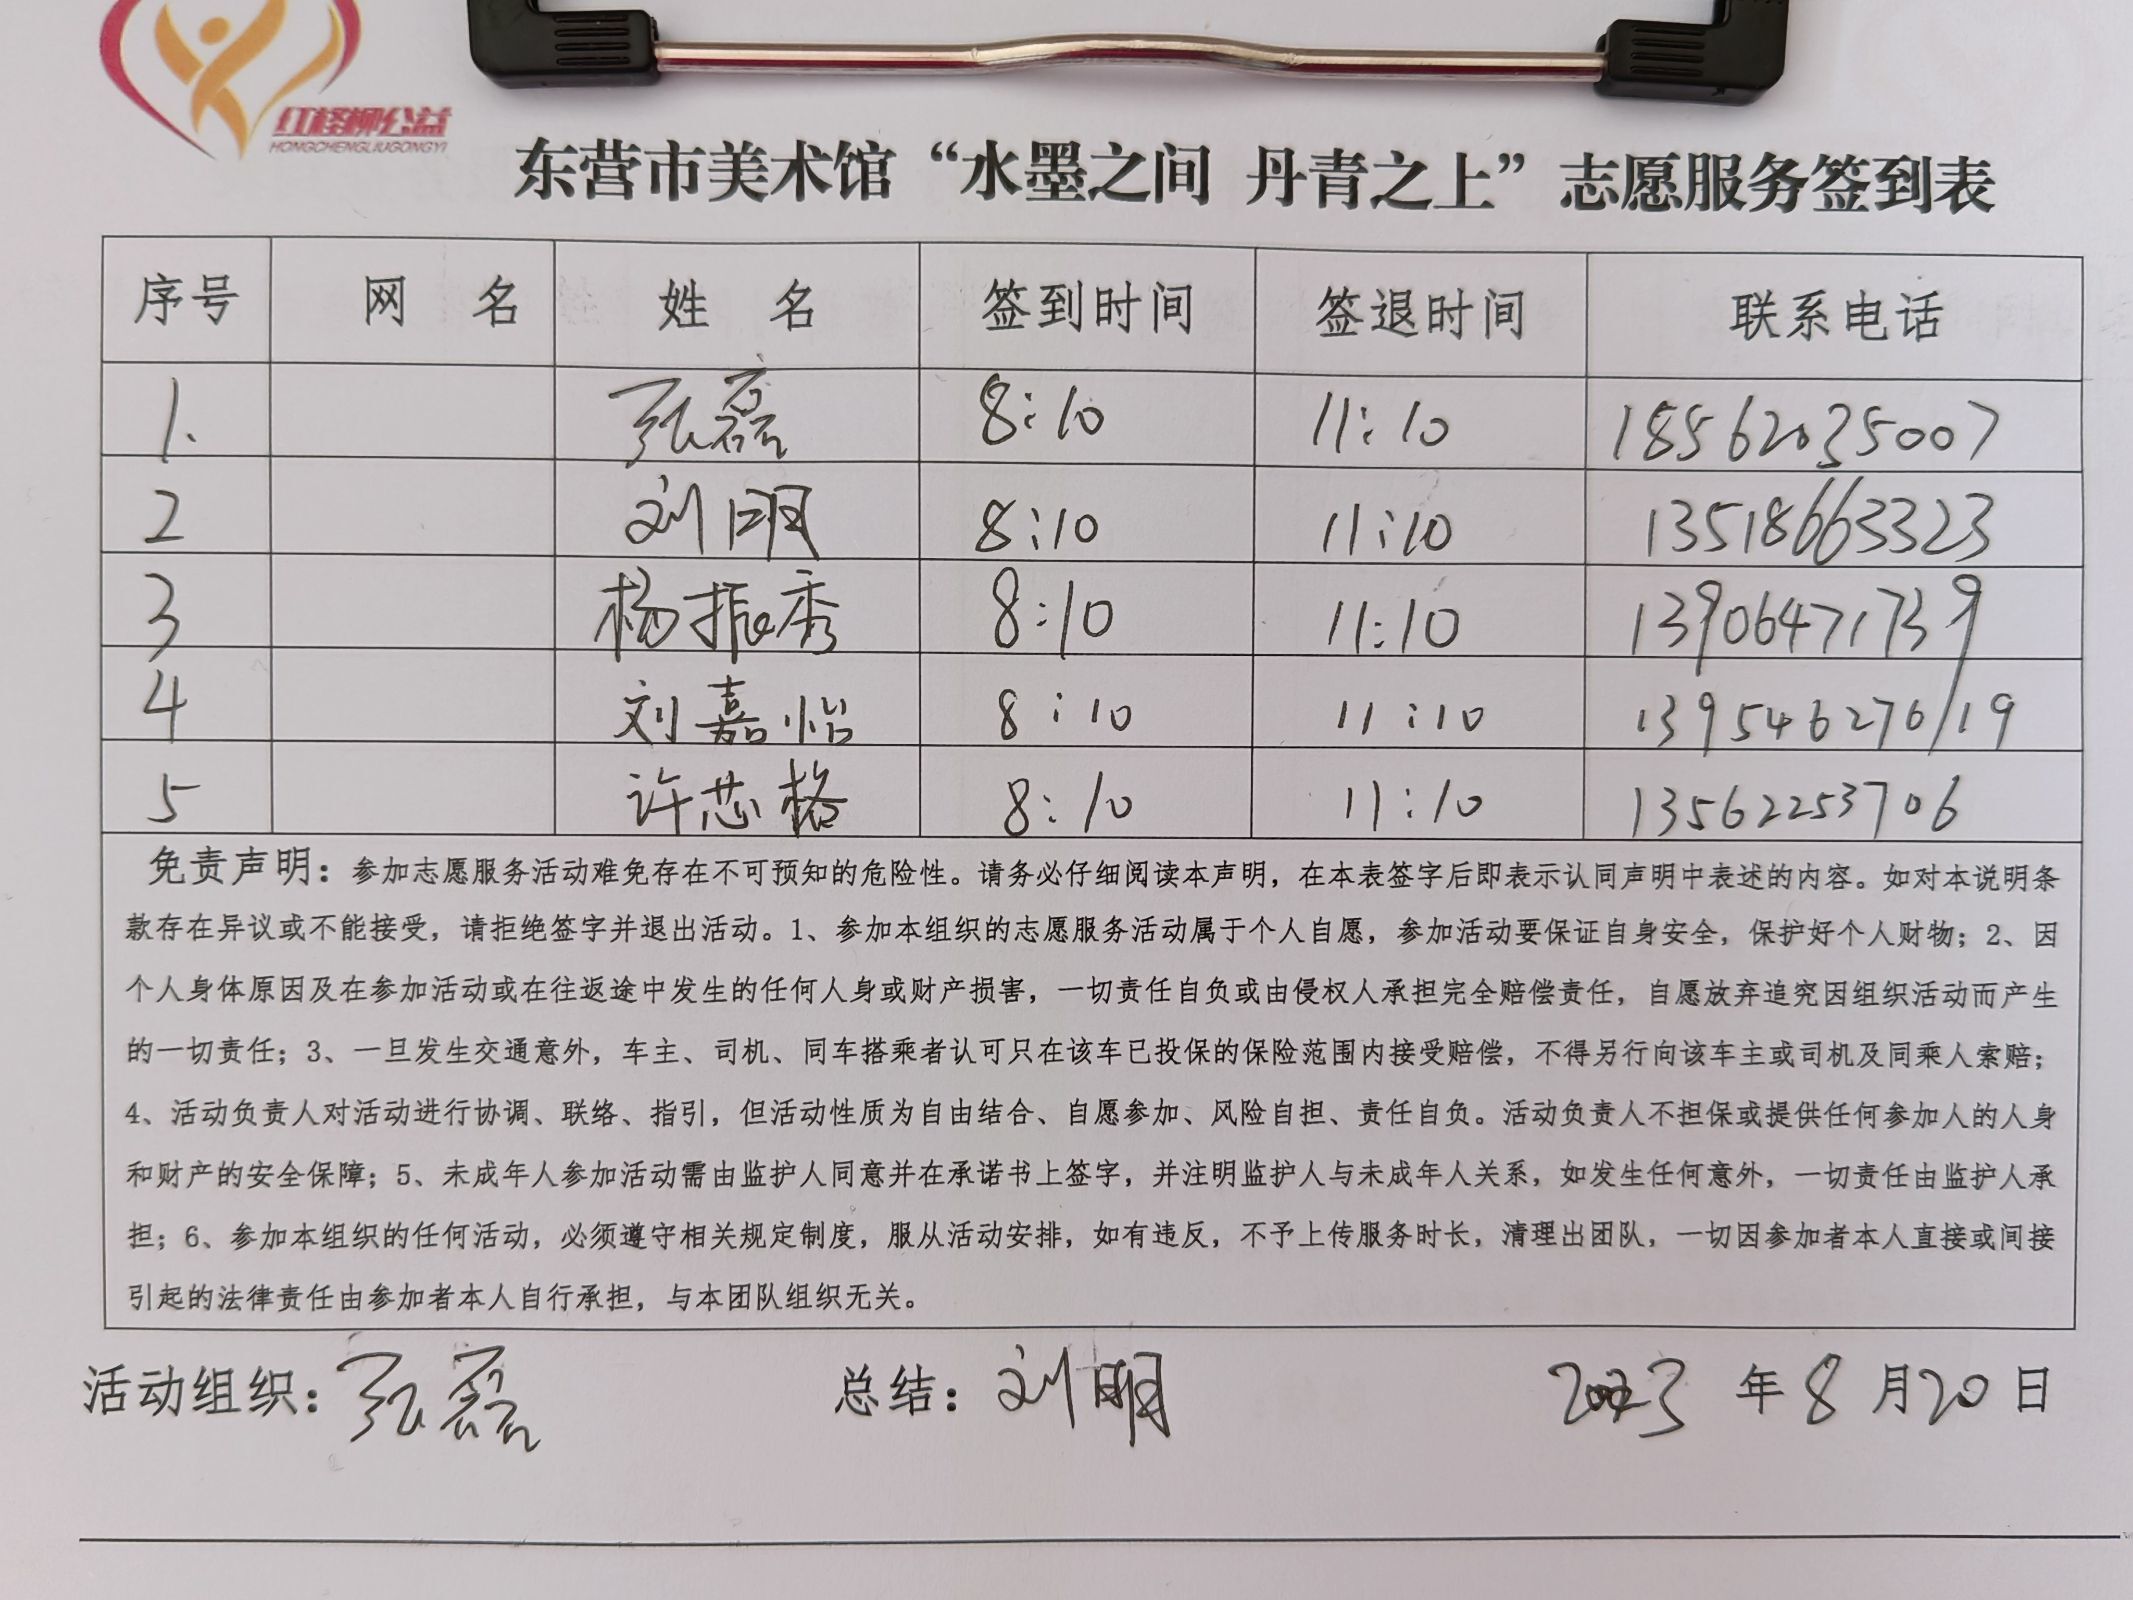 红柽柳公益
HONGCHENGLIUGONGYI
东营市美术馆“水墨之间 丹青之上”志愿服务签到表
序号 网 名 姓 名 签到时间 签退时间 联系电话
1. 张磊 8:10 11:10 18562035007
2 刘明 8:10 11:10 13518663323
3 杨振秀 8:10 11:10 13906471739
4 刘嘉怡 8:10 11:10 13954627619
5 许芯格 8:10 11:10 13562253706
免责声明：参加志愿服务活动难免存在不可预知的危险性。请务必仔细阅读本声明，在本表签字后即表示认同声明中表述的内容。如对本说明条
款存在异议或不能接受，请拒绝签字并退出活动。1、参加本组织的志愿服务活动属于个人自愿，参加活动要保证自身安全，保护好个人财物；2、因
个人身体原因及在参加活动或在往返途中发生的任何人身或财产损害，一切责任自负或由侵权人承担完全赔偿责任，自愿放弃追究因组织活动而产生
的一切责任；3、一旦发生交通意外，车主、司机、同车搭乘者认可只在该车已投保的保险范围内接受赔偿，不得另行向该车主或司机及同乘人索赔；
4、活动负责人对活动进行协调、联络、指引，但活动性质为自由结合、自愿参加、风险自担、责任自负。活动负责人不担保或提供任何参加人的人身
和财产的安全保障；5、未成年人参加活动需由监护人同意并在承诺书上签字，并注明监护人与未成年人关系，如发生任何意外，一切责任由监护人承
担；6、参加本组织的任何活动，必须遵守相关规定制度，服从活动安排，如有违反，不予上传服务时长，清理出团队，一切因参加者本人直接或间接
引起的法律责任由参加者本人自行承担，与本团队组织无关。
活动组织：张磊 总结：刘明 2023 年 8 月 20 日